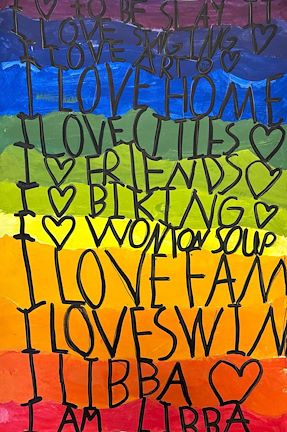 I ♡ TO BE SLAY IT
I LOVE SINGING ♡
I LOVE ART ♡
I LOVE HOME
I LOVE CITIES ♡
I ♡ FRIENDS ♡
I ♡ BIKING ♡
I ♡ WONTON SOUP
I LOVE FAM
I LOVE SWIN
I LIBBA ♡
I AM LIBBA